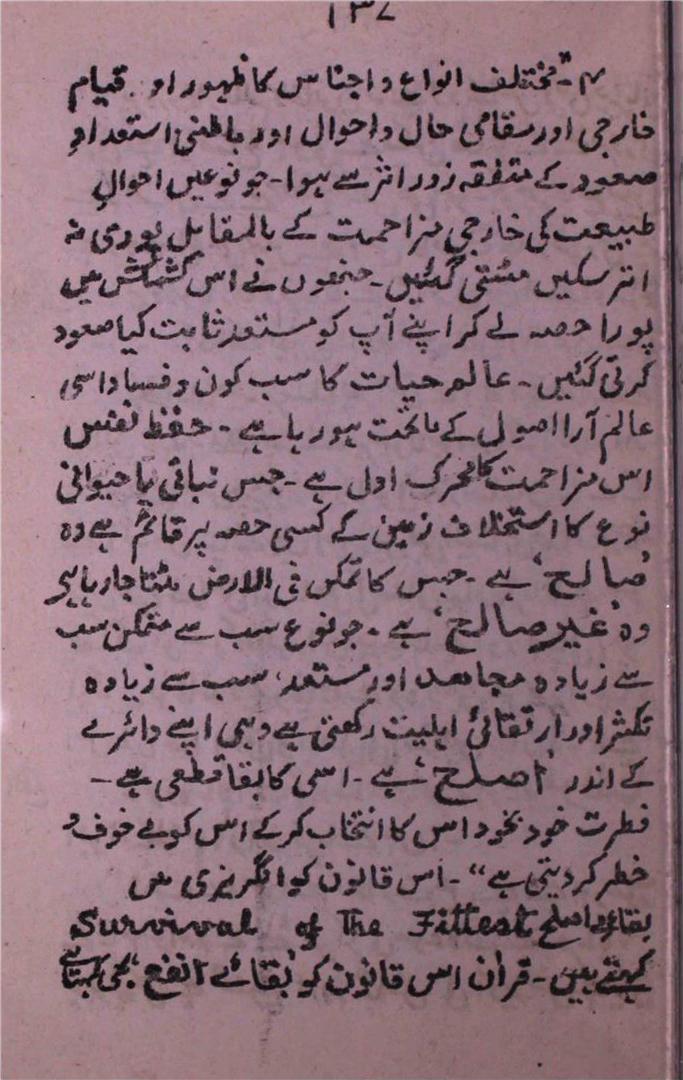 ۱۳۷
۴- "مختلف انواع و اجناس کا ظہور اور قیام
خارجی اور مقامی حال و احوال اور باطنی استعدادِ
صعود کے متفقہ زور اثر سے ہوا۔ جو نوعیں احوالِ
طبیعت کی خارجی مزاحمت کے بالمقابل پوری نہ
اتر سکیں مٹتی گئیں۔ جنھوں نے اس کشمکش میں
پورا حصہ لے کر اپنے آپ کو مستعد ثابت کیا صعود
کرتی گئیں۔ عالم حیات کا سب کون و فساد اسی
عالم آرا اصول کے ماتحت ہو رہا ہے۔ حفظ نفس
اس مزاحمت کا محرک اول ہے۔ جس نباتی یا حیوانی
نوع کا استخلاف زمین کے کسی حصہ پر قائم ہے وہ
'صالح' ہے۔ جس کا تمکن فی الارض مٹتا جا رہا ہے
وہ 'غیر صالح' ہے۔ جو نوع سب سے متمکن سب
سے زیادہ مجاہد اور مستعد، سب سے زیادہ
تکثر اور ارتقائی اہلیت رکھتی ہے وہی اپنے دائرے
کے اندر 'اصلح' ہے۔ اسی کا بقا قطعی ہے۔
فطرت خود بخود اس کا انتخاب کر کے اس کو بے خوف و
خطر کر دیتی ہے"۔ اس قانون کو انگریزی میں
بقائے اصلح Survival of The Fittest
کہتے ہیں۔ قرآن اس قانون کو 'بقائے انفع' بھی کہتا ہے